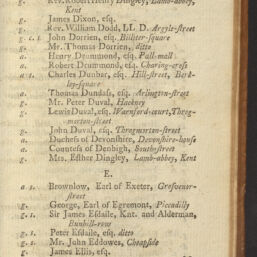 g. Rev. Robert Henry Dingley, Lamb-abbey,
Kent
g. James Dixon, esq.
g. Rev. William Dodd, LL D. Argyle-street
g. 1. s John Dorrien, esq. Billiter-square
g. Mr. Thomas Dorrien, ditto
a. Henry Drummond, esq. Pall-mall
g. Robert Drummond, esq. Charing-cross
a 1. Charles Dunbar, esq. Hill-street, Berk-
ley-square
a. Thomas Dundass, esq. Arlington-street
g. Mr. Peter Duval, Hackney
g. Lewis Duval, esq. Warnford-court, Throg-
morton-street
g. John Duval, esq. Throgmorton-street
a. Duchess of Devonshire, Devonshire-house
a. Countess of Denbigh, South-street
g. Mrs. Esther Dingley, Lamb-abbey, Kent
E.
a 1. Brownlow, Earl of Exeter, Grosvenor-
street
g. George, Earl of Egremont, Piccadilly
g. 1. Sir James Esdaile, Knt. and Alderman,
Bunhill-row
g. 1. Peter Esdaile, esq. ditto
g 1. Mr. John Eddowes, Cheapside
g. James Ellis, esq.